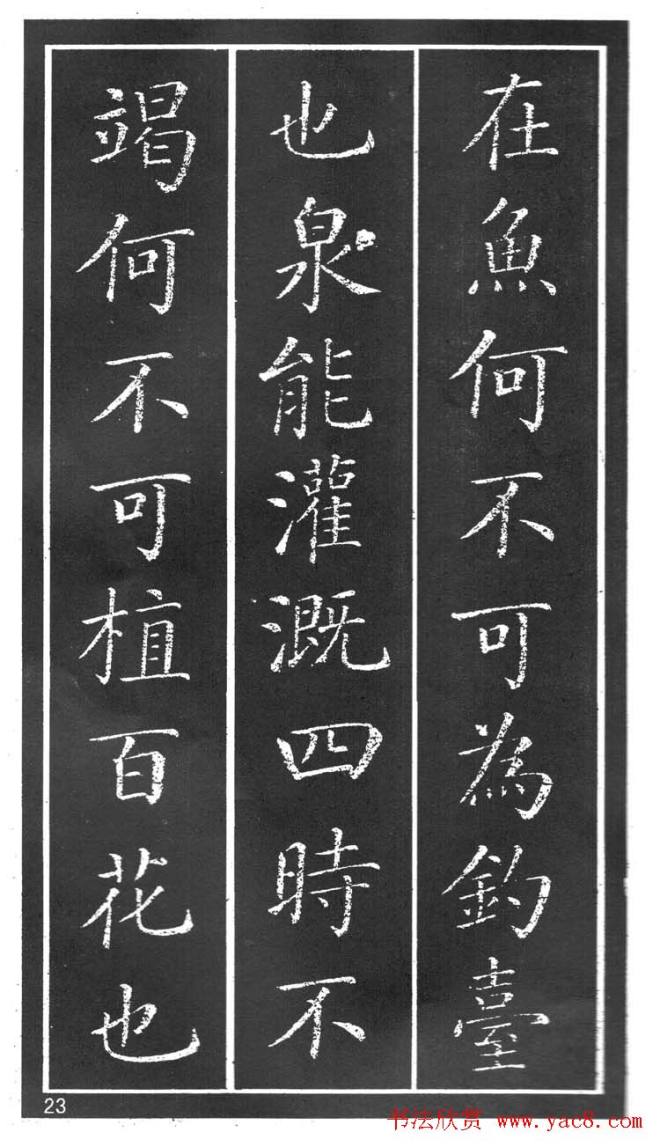 在魚何不可為釣臺
也泉能灌溉四時不
竭何不可植百花也
23
书法欣赏 www.yac8.com